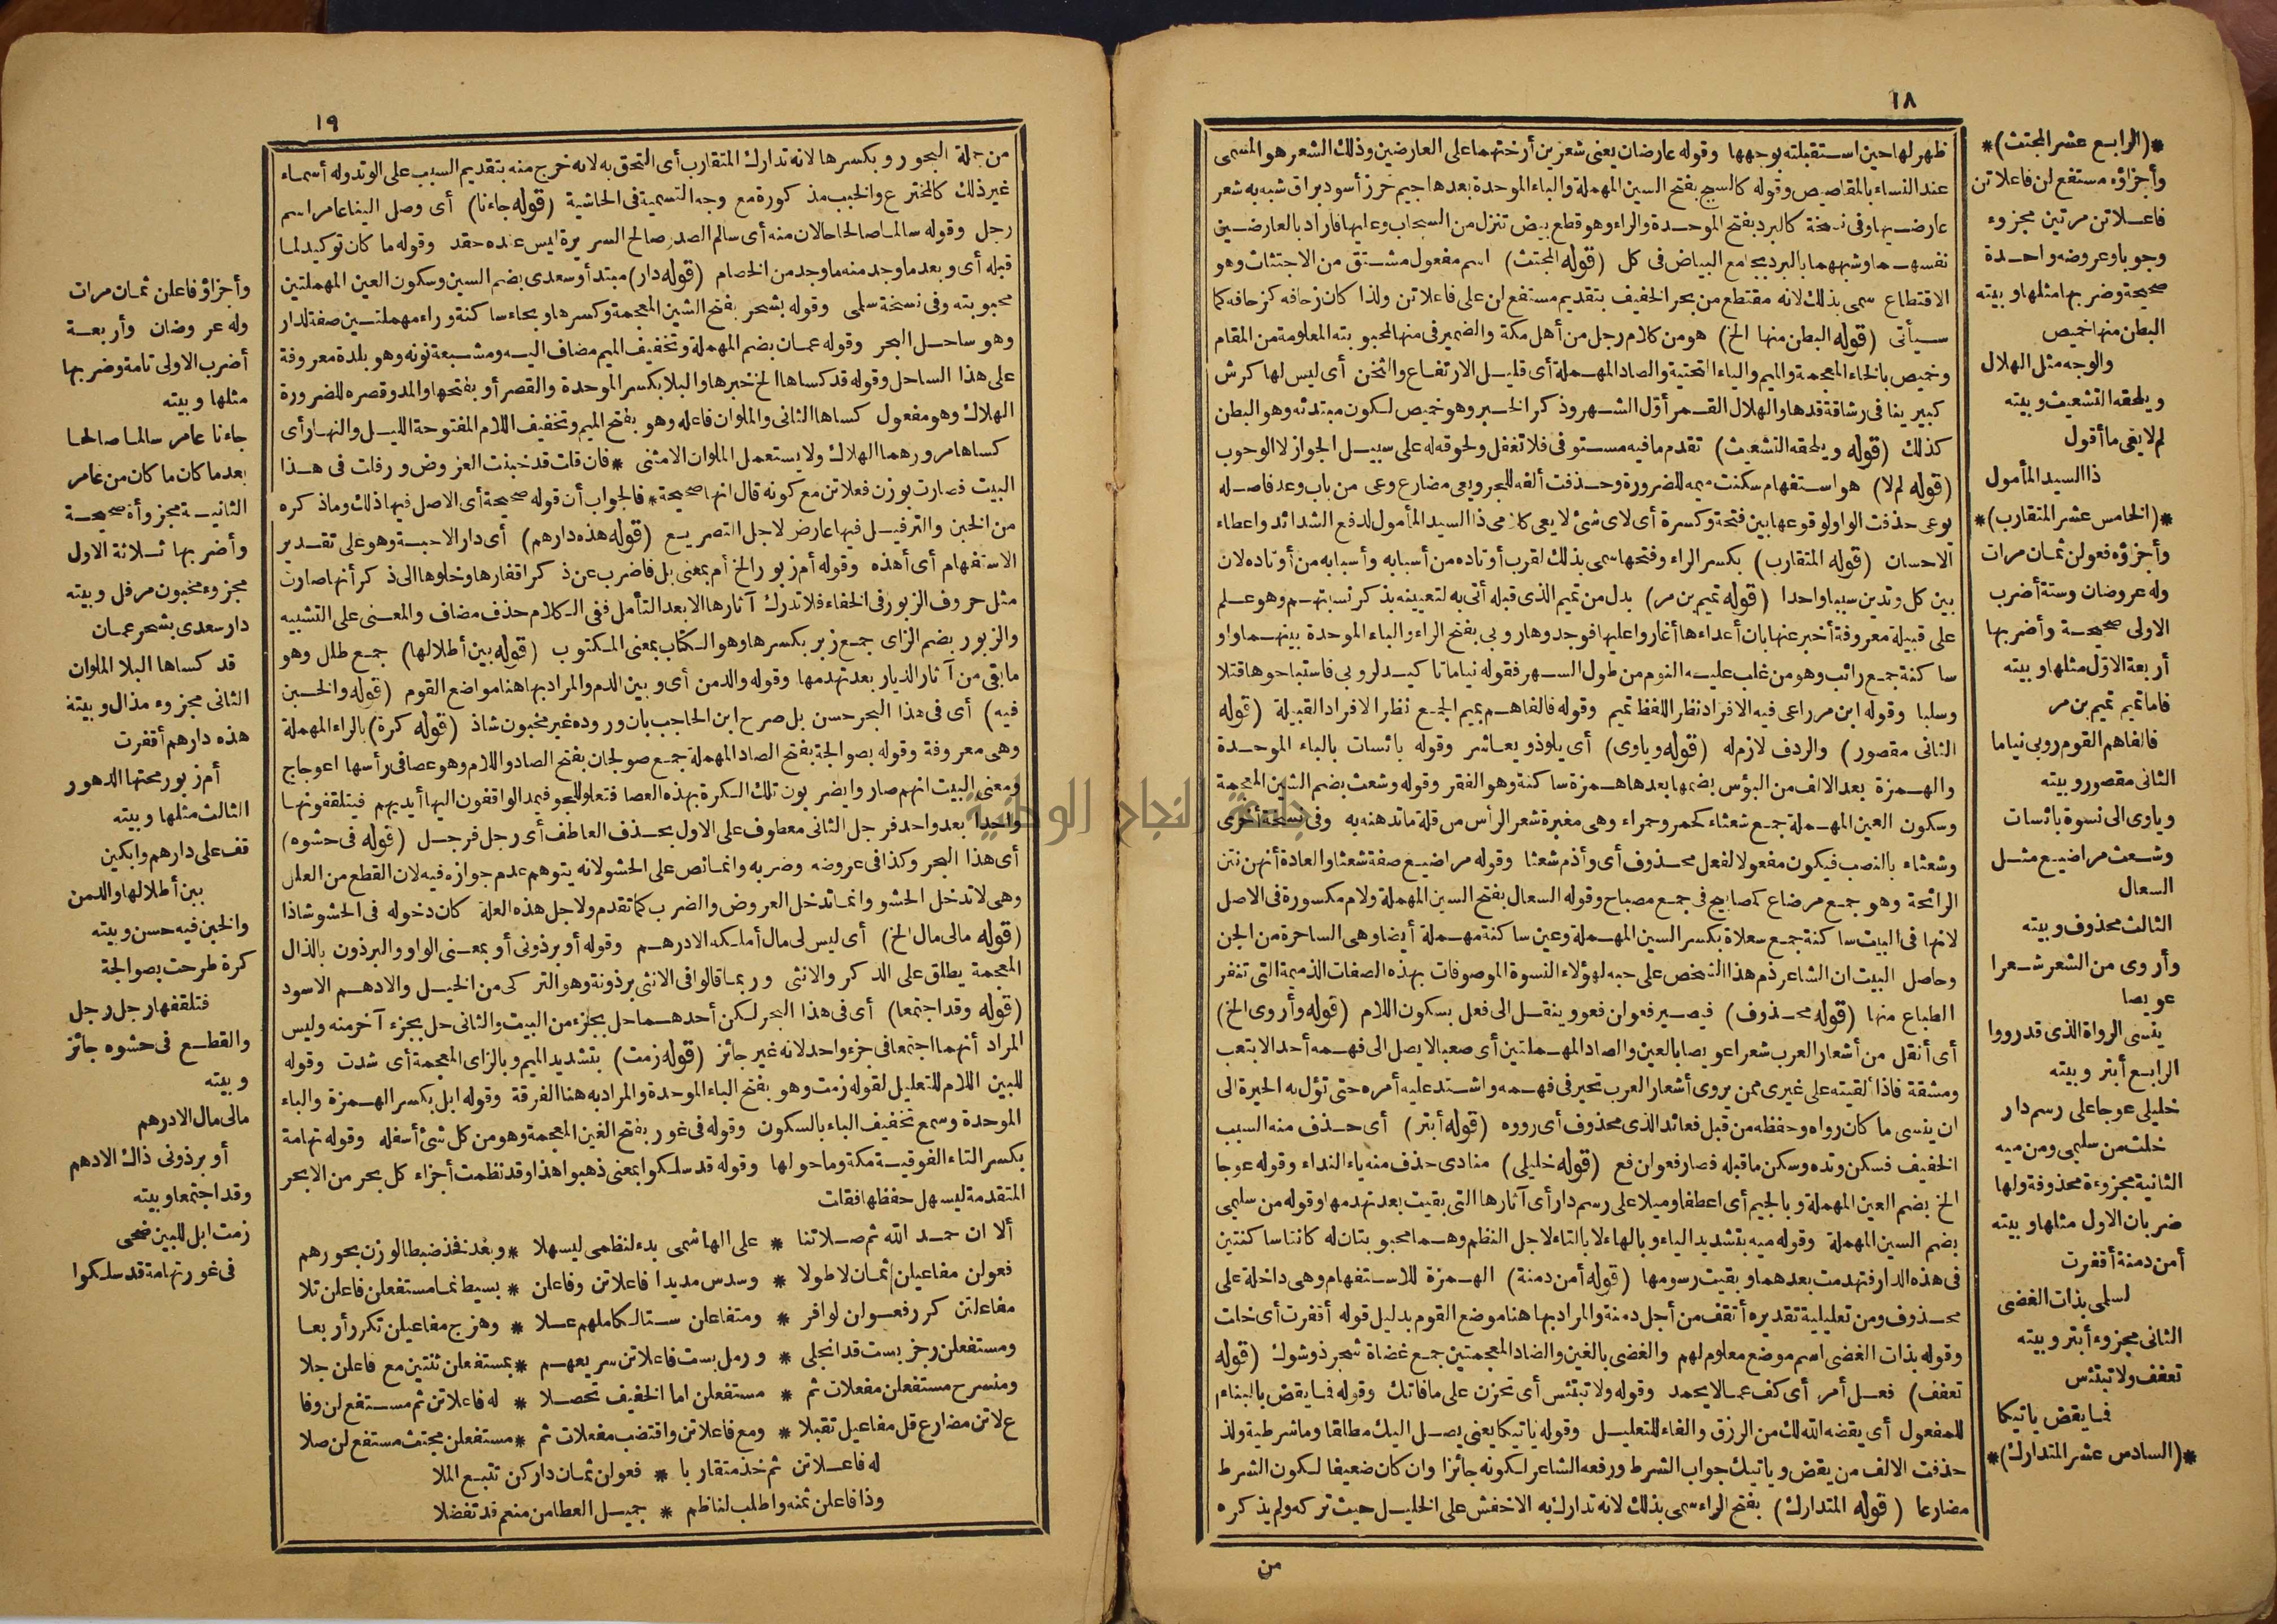 ١٨
*(الرابع عشر المجتث)*
وأجزاؤه مستفع لن فاعلاتن
فاعلاتن مرتين مجزوء
وجوبا وعروضه واحدة
صحيحة وضربها مثلها وبيته
البطن منها خميص
والوجه مثل الهلال
ويلحقه التشعيث وبيته
لم لا يعي ما أقول
ذا السيد المأمول
*(الخامس عشر المتقارب)*
وأجزاؤه فعولن ثمان مرات
وله عروضان وستة أضرب
الاولى صحيحة وأضربها
أربعة الاول مثلها وبيته
فاما تميم تميم بن مر
فالفاهم القوم روبى نياما
الثاني مقصور وبيته
وياوى الى نسوة بائسات
وشعث مراضيع مثل
السعال
الثالث محذوف وبيته
وأروى من الشعر شعرا
عويصا
ينسى الرواة الذى قدرووا
الرابع أبتر وبيته
خليلى عوجا على رسم دار
خلت من سليمى ومن ميه
الثانية مجزوءة محذوفة ولها
ضربان الاول مثلها وبيته
أمن دمنة أقفرت
لسلمى بذات الغضى
الثانى مجزوء أبتر وبيته
تعفف ولا تبتئس
فما يقض ياتيكا
*(السادس عشر المتدارك)*
ظهر لها حين استقبلته بوجهها وقوله عارضات يعنى شعرين أرختهما على العارضين وذلك الشعر هو المسمى
عند النساء بالمقاصيص وقوله كالسبج بفتح السين المهملة والباء الموحدة بعدها جيم خرز أسود براق شبه به شعر
عارضيها وفى نسخة كالبرد بفتح الموحدة والراء وهو قطع بيض تنزل من السحاب وعليها فاراد بالعارضين
نفسهما وشبههما بالبرد بجامع البياض فى كل (قوله المجتث) اسم مفعول مشتق من الاجتثاث وهو
الاقتطاع سمى بذلك لانه مقتطع من بحر الخفيف بتقديم مستفع لن على فاعلاتن ولذا كان زحافه كزحافه كما
سيأتى (قوله البطن منها الخ) هو من كلام رجل من أهل مكة والضمير فى منها لمحبوبته المعلومة من المقام
وخميص بالخاء المعجمة والميم والياء التحتية والصاد المهملة أى قليل الارتفاع والثخن أى ليس لها كرش
كبير ينافى رشاقة قدها والهلال القمر أول الشهر وذكر الخبر وهو خميص لكون مبتدئه وهو البطن
كذلك (قوله ويلحقه التشعيث) تقدم ما فيه مستوفى فلا تغفل ولحوقه له على سبيل الجواز لا الوجوب
(قوله لم لا) هو استفهام سكنت ميمه للضرورة وحذفت ألفه للبحر ويعى مضارع وعى من باب وعد فاصله
يوعى حذفت الواو لوقوعها بين فتحة وكسرة أى لاى شئ لا يعى كلامى ذا السيد المأمول لدفع الشدائد واعطاء
الاحسان (قوله المتقارب) بكسر الراء وفتحها سمى بذلك لقرب أوتاده من أسبابه وأسبابه من أوتاده لان
بين كل وتدين سببا واحدا (قوله تميم بن مر) بدل من تميم الذى قبله أتى به لتعيينه بذكر نسبتهم وهو علم
على قبيلة معروفة أخبر عنها بان أعداءها أغاروا عليها فوجدوها روبى بفتح الراء والباء الموحدة بينهما واو
ساكنة جمع رائب وهو من غلب عليه النوم من طول السهر فقوله نياما تاكيد لروبى فاستباحوها قتلا
وسلبا وقوله ابن مر راعى فيه الافراد نظرا للفظ تميم وقوله فالفاهم بميم الجمع نظرا لافراد القبيلة (قوله
الثانى مقصور) والردف لازم له (قوله وياوى) أى يلوذ ويعاشر وقوله بائسات بالباء الموحدة
والهمزة بعد الالف من البؤس بضمها بعدها همزة ساكنة وهو الفقر وقوله وشعث بضم الشين المعجمة
وسكون العين المهملة جمع شعثاء كحمر وحمراء وهى مغبرة شعر الرأس من قلة ما تدهنه به وفى نسخة أخرى
وشعثاء بالنصب فيكون مفعولا لفعل محذوف أى وأذم شعثا وقوله مراضيع صفة شعثا والعادة أنهن نتن
الرائحة وهو جمع مرضاع كمصابيح فى جمع مصباح وقوله السعال بفتح السين المهملة ولام مكسورة فى الاصل
لانها فى البيت ساكنة جمع سعلاة بكسر السين المهملة وعين ساكنة مهملة أيضا وهى الساحرة من الجن
وحاصل البيت ان الشاعر ذم هذا الشخص على حبه لهؤلاء النسوة الموصوفات بهذه الصفات الذميمة التى تنفر
الطباع منها (قوله محذوف) فيصير فعولن فعو وينقل الى فعل بسكون اللام (قوله وأروى الخ)
أى أنقل من أشعار العرب شعرا عويصا بالعين والصاد المهملتين أى صعبا لا يصل الى فهمه أحد الا بتعب
ومشقة فاذا ألقيته على غيرى ممن يروى أشعار العرب تحير فى فهمه واشتد عليه أمره حتى تؤل به الحيرة الى
ان ينسى ما كان رواه وحفظه من قبل فعائد الذى محذوف أى رووه (قوله أبتر) أى حذف منه السبب
الخفيف فسكن وتده وسكن ما قبله فصار فعولن فع (قوله خليلى) منادى حذف منه ياء النداء وقوله عوجا
الخ بضم العين المهملة وبالجيم أى اعطفا وميلا على رسم دار أى آثارها التى بقيت بعد تهدمها وقوله من سليمى
بضم السين المهملة وقوله ميه بتشديد الياء وبالهاء لا بالتاء لاجل النظم وهما محبوبتان له كانتا ساكنتين
فى هذه الدار فتهدمت بعدهما وبقيت رسومها (قوله أمن دمنة) الهمزة للاستفهام وهى داخلة على
محذوف ومن تعليلية تقديره أتقف من أجل دمنة والمراد بها هنا موضع القوم بدليل قوله أقفرت أى خلت
وقوله بذات الغضى اسم موضع معلوم لهم والغضى بالغين والضاد المعجمتين جمع غضاة شجر ذو شوك (قوله
تعفف) فعل أمر أى كف عما لا يحمد وقوله ولا تبتئس أى تحزن على ما فاتك وقوله فما يقض بالبناء
للمفعول أى يقضه الله لك من الرزق والفاء للتعليل وقوله ياتيكا يعنى يصل اليك مطالقا وما شرطية ولذ
حذفت الالف من يقض وياتيك جواب الشرط ورفعه الشاعر لكونه جائزا وان كان ضعيفا لكون الشرط
مضارعا (قوله المتدارك) بفتح الراء سمى بذلك لانه تدارك به الاخفش على الخليل حيث تركه ولم يذكره
من
١٩
من جملة البحور وبكسرها لانه تدارك المتقارب أى التحق به لانه خرج منه بتقديم السبب على الوتد وله أسماء
غير ذلك كالمخترع والخبب مذكورة مع وجه التسمية فى الحاشية (قوله جاءنا) أى وصل الينا عامر اسم
رجل وقوله سالما صالحا حالان منه أى سالم الصدر صالح السريرة ليس عنده حقد وقوله ما كان توكيد لما
قبله أى وبعد ما وجد منه ما وجد من الخصام (قوله دار) مبتدأ وسعدى بضم السين وسكون العين المهملتين
محبوبته وفى نسخة سلمى وقوله بشحر بفتح الشين المعجمة وكسرها وبحاء ساكنة وراء مهملتين صفة لدار
وهو ساحل البحر وقوله عمان بضم المهملة وتخفيف الميم مضاف اليه ومشبعة نونه وهو بلدة معروفة
على هذا الساحل وقوله قد كساها الخ خبرها والبلا بكسر الموحدة والقصر أو بفتحها والمد وقصره للضرورة
الهلاك وهو مفعول كساها الثانى والملوان فاعله وهو بفتح الميم وتخفيف اللام المفتوحة الليل والنهار أى
كساها مرورهما الهلاك ولا يستعمل الملوان الا مثنى * فان قلت قد خبنت العروض ورفلت فى هذا
البيت فصارت بوزن فعلاتن مع كونه قال انها صحيحة * فالجواب أن قوله صحيحة أى الاصل فيها ذلك وما ذكره
من الخبن والترفيل فيها عارض لاجل التصريع (قوله هذه دارهم) أى دار الاحبة وهو على تقدير
الاستفهام أى أهذه وقوله أم زبور الخ أم بمعنى بل فاضرب عن ذكر اقفارها وخلوها الى ذكر أنها صارت
مثل حروف الزبور فى الخفاء فلا تدرك آثارها الا بعد التأمل ففى الكلام حذف مضاف والمعنى على التشبيه
والزبور بضم الزاى جمع زبر بكسرها وهو الكتاب بمعنى المكتوب (قوله بين أطلالها) جمع طلل وهو
ما بقى من آثار الديار بعد تهدمها وقوله والدمن أى وبين الدم والمراد بها هنا مواضع القوم (قوله والخبن
فيه) أى فى هذا البحر حسن بل صرح ابن الحاجب بان وروده غير مخبون شاذ (قوله كرة) بالراء المهملة
وهى معروفة وقوله بصوالجة بفتح الصاد المهملة جمع صولجان بفتح الصاد واللام وهو عصا فى رأسها اعوجاج
ومعنى البيت انهم صاروا يضربون تلك الكرة بهذه العصا فتعلو للجو فيمد الواقفون اليها أيديهم فيتلقفونها
واحدا بعد واحد فرجل الثانى معطوف على الاول بحذف العاطف أى رجل فرجل (قوله فى حشوه)
أى هذا البحر وكذا فى عروضه وضربه وانما نص على الحشو لانه يتوهم عدم جوازه فيه لان القطع من العلل
وهى لا تدخل الحشو وانما تدخل العروض والضرب كما تقدم ولاجل هذه العلة كان دخوله فى الحشو شاذا
(قوله مالى مال الخ) أى ليس لى مال أملكه الا درهم وقوله أو برذونى أو بمعنى الواو والبرذون بالذال
المعجمة يطلق على الذكر والانثى وربما قالوا فى الانثى برذونة وهو التركى من الخيل والادهم الاسود
(قوله وقد اجتمعا) أى فى هذا البحر لكن أحدهما حل بجزء من البيت والثانى حل بجزء آخر منه وليس
المراد أنهما اجتمعا فى جزء واحد لانه غير جائز (قوله زمت) بتشديد الميم وبالزاى المعجمة أى شدت وقوله
للبين اللام للتعليل لقوله زمت وهو بفتح الباء الموحدة والمراد به هنا الفرقة وقوله ابل بكسر الهمزة والباء
الموحدة وسمع تخفيف الباء بالسكون وقوله فى غور بفتح الغين المعجمة وهو من كل شئ أسفله وقوله تهامة
بكسر التاء الفوقية مكة وما حولها وقوله قد سلكوا بمعنى ذهبوا هذا وقد نظمت أجزاء كل بحر من الابحر
المتقدمة ليسهل حفظها فقلت
ألا ان حمد الله ثم صلاتنا * على الهاشمى بدء لنظمى ليسهلا * وبعد فخذ ضبطا لوزن بحورهم
فعولن مفاعيلن ثمان لاطولا * وسدس مديدا فاعلاتن وفاعلن * بسيط نما مستفعلن فاعلن تلا
مفاعلتن كرر فعولن لوافر * ومتفاعلن ستا لكاملهم علا * وهزج مفاعيلن تكرر أربعا
ومستفعلن رجز بست قد انجلى * ورمل بست فاعلاتن سريعهم * بمستفعلن ثنتين مع فاعلن جلا
ومنسرح مستفعلن مفعلات ثم * مستفعلن اما الخفيف تحصلا * له فاعلاتن ثم مستفع لن وفا
ع لاتن مضارع قل مفاعيل تقبلا * ومع فاعلاتن واقتضب مفعلات ثم * مستفعلن مجتث مستفع لن صلا
له فاعلاتن ثم خذ متقاربا * فعولن ثمان داركن تتبع الملا
وذا فاعلن ثمنه واطلب لناظم * جميل العطا من منعم قد تفضلا
وأجزاؤ فاعلن ثمان مرات
وله عروضان وأربعة
أضرب الاولى تامة وضربها
مثلها وبيته
جاءنا عامر سالما صالحا
بعد ما كان ما كان من عامر
الثانية مجزوأة صحيحة
وأضربها ثلاثة الاول
مجزوء مخبون مرفل وبيته
دار سعدى بشحر عمان
قد كساها البلا الملوان
الثانى مجزوء مذال وبيته
هذه دارهم أقفرت
أم زبور محتها الدهور
الثالث مثلها وبيته
قف على دارهم وابكين
بين أطلالها والدمن
والخبن فيه حسن وبيته
كرة طرحت بصوالجة
فتلقفها رجل رجل
والقطع فى حشوه جائز
وبيته
مالى مال الا درهم
أو برذونى ذاك الادهم
وقد اجتمعا وبيته
زمت ابل للبين ضحى
فى غور تهامة قد سلكوا
جامعة النجاح الوطنية